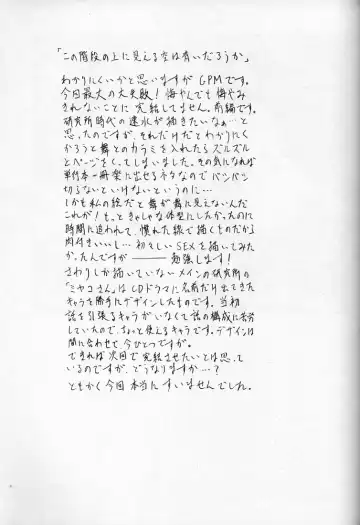 「この階段の上に見える空は青いだろうか」
わかりにくいかと思いますが GPMです。
今回最大の大失敗！悔やんでも悔やみ
きれないことに完結してません。前編です。
研究所時代の速水が描きたいなぁ…と
思ったのですが、それだけだとわかりにく
かろうと舞とのカラミを入れたらズルズル
とページをくってしまいました。その気になれば
単行本一冊楽に出せるネタなのでバンバン
切らないといけないというのに…
しかも私の絵だと舞が舞に見えないんだ
これが！もっときゃしゃな体型にしたかったのに
時間に追われて、慣れた線で描くものだから
肉付きいいし…初々しいSEXを描いてみた
かったんですが――――勉強します！
さわりしか描いていないメインの研究所の
「ミヤコさん」はCDドラマに名前だけ出てきた
キャラを勝手にデザインしたものです。当初
話を引張るキャラがいなくて話の構成に苦労
していたので、ちょっと使えるキャラです。デザインは
間に合わせで、今ひとつですが。
できれば次回で完結させたいとは思って
いるのですが、どうなりますか…？
ともかく今回本当にすいませんでした。